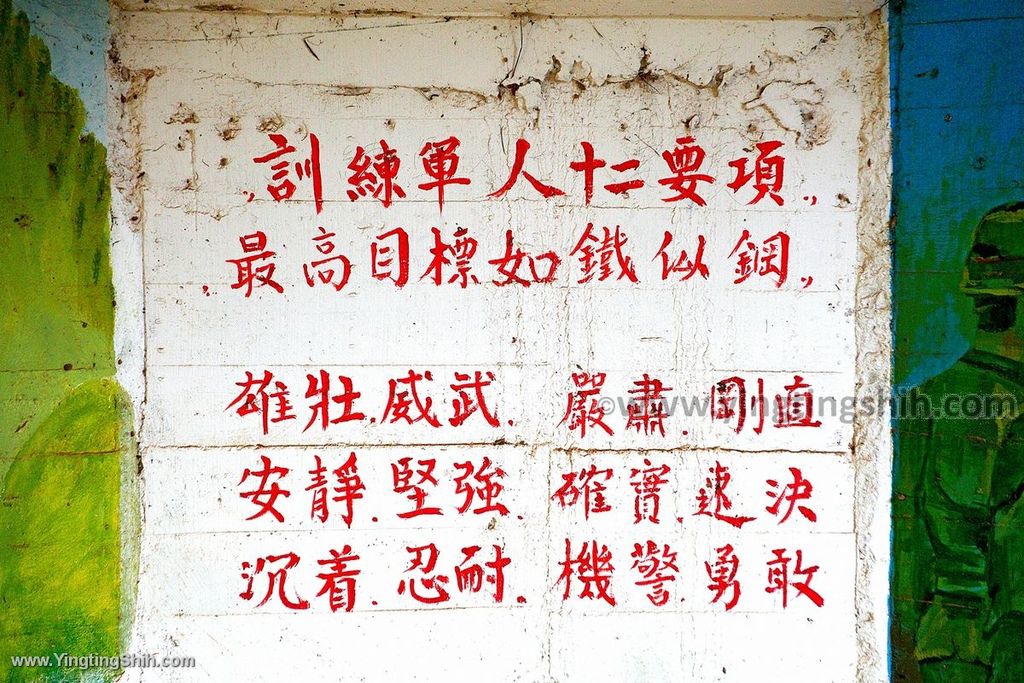 „訓練軍人十二要項„
„最高目標如鐵似鋼„
雄壯.威武.嚴肅.剛直
安靜.堅強.確實.速決
沉着.忍耐.機警.勇敢
©www.YingtingShih.com
www.YingtingShih.com